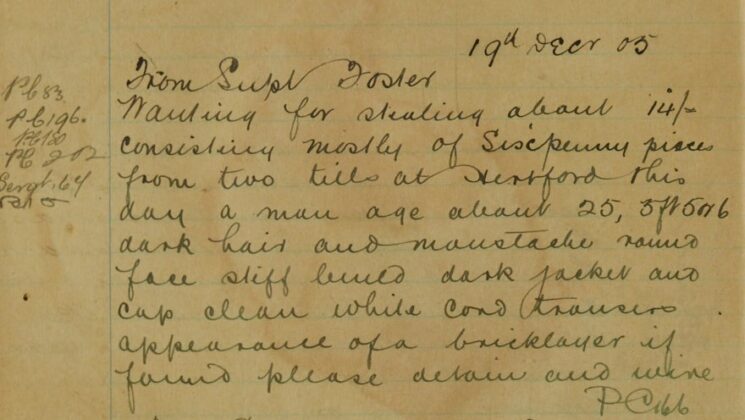 19th Decr 05
From Supt Foster
Wanting for stealing about 14/-
consisting mostly of Sixpenny pieces
from two tills at Hertford this
day a man age about 25, 5ft 5 or 6
dark hair and moustache round
face stiff build dark jacket and
cap clean white cord trousers
appearance of a bricklayer if
found please detain and wire
PC 66
Pc 83
Pc 196.
Pc 180
Pc 202
Sergt. 64